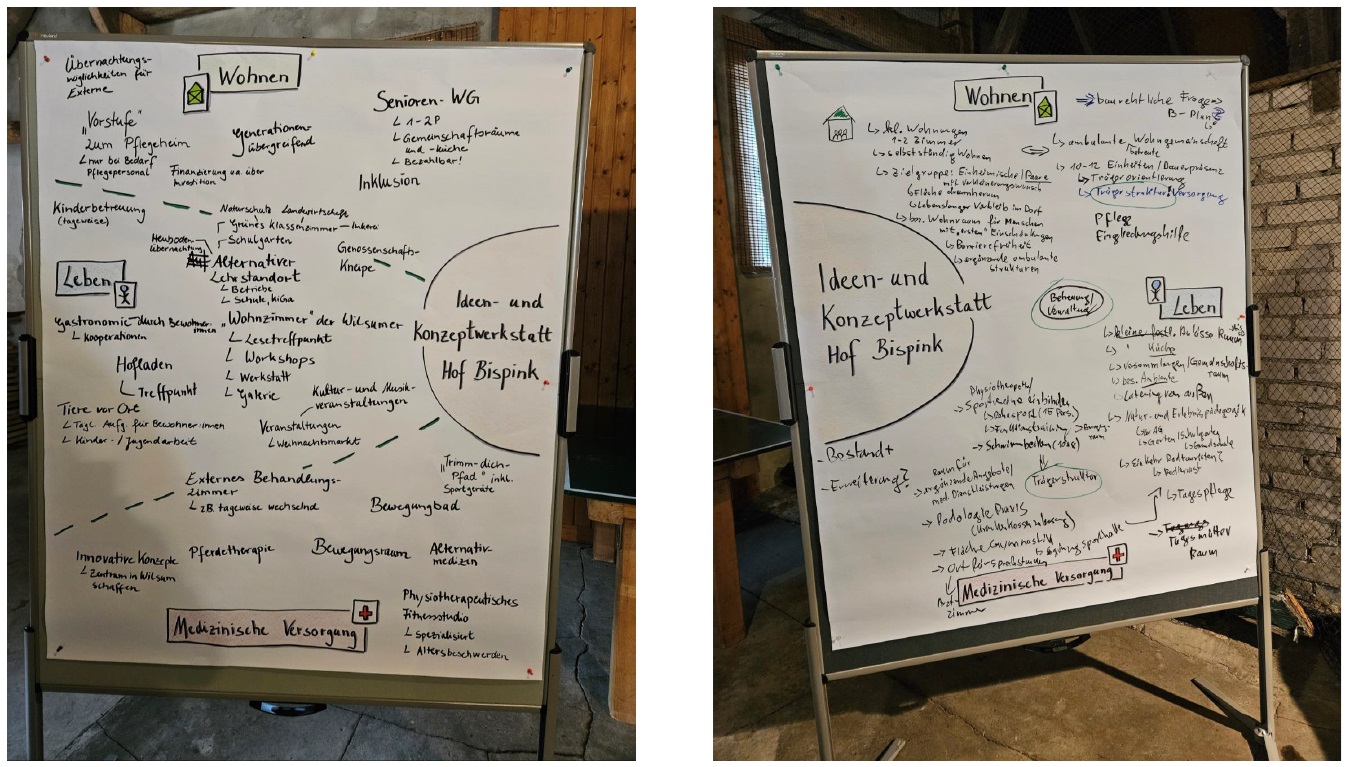 Übernachtungs-
möglichkeiten für
Externe
Wohnen
Senioren-WG
1-2P
Gemeinschaftsräume
und -küche
Bezahlbar!
„Vorstufe"
zum Pflegeheim
nur bei Bedarf
Pflegepersonal
Generationen-
übergreifend
Finanzierung u.a. über
Investition
Inklusion
Kinderbetreuung
(tageweise)
Naturschutz Landwirtschaft
Grünes Klassenzimmer — Imkerei
Schulgarten
Heuboden-
übernachtung
Alternativer
Lehrstandort
Betriebe
Schule, KiGa
Genossenschafts-
Kneipe
Leben
Gastronomie durch Bewohner
innen
Kooperationen
Hofladen
Treffpunkt
„Wohnzimmer" der Wilsumer
Lesetreffpunkt
Workshops
Werkstatt
Galerie
Ideen- und
Konzeptwerkstatt
Hof Bispink
Tiere vor Ort
Tägl. Aufg. für Bewohner:innen
Kinder-/Jugendarbeit
Kultur- und Musik-
veranstaltungen
Veranstaltungen
Weihnachtsmarkt
Externes Behandlungs-
zimmer
z.B. tageweise wechselnd
„Trimm-dich-
Pfad" inkl.
Sportgeräte
Bewegungbad
Innovative Konzepte
Zentrum in Wilsum
schaffen
Pferdetherapie
Bewegungsraum
Alternativ-
medizin
Medizinische Versorgung
Physiotherapeutisches
Fitnessstudio
Spezialisiert
Altersbeschwerden
Wohnen
baurechtliche Fragen
B-Plan
Wohnungen
1-2 Zimmer
selbstständig Wohnen
Zielgruppe: Einheimische/Paare
mit Verkleinerungswunsch
Fläche drumherum
Lebenslanger Verbleib im Dorf
bes. Wohnraum für Menschen
mit „ersten" Einschränkungen
Barrierefreiheit
ergänzende ambulante
Strukturen
ambulante Wohngemeinschaft
betreute
10-12 Einheiten/Dauerpräsenz
Trägerorientierung
Trägerstruktur: Versorgung
Pflege
Eingliederungshilfe
Ideen- und
Konzeptwerkstatt
Hof Bispink
Betreuung/
Verwaltung
Leben
Küche
Versammlungen/Gemeinschafts
raum
bes. Ambiente
Catering von außen
Natur- und Erlebnispädagogik
AG
Garten/Schulgarten
Grundschule
Einkehr Radtouristen?
Tagespflege
Tagesmütter
Raum
-Bestand+
-Erweiterung?
Physiotherapeuth/
Sportvereine einbinden
Rehasport (15 Pers.)
Funktionstraining
Schwimmbecken
Raum für
ergänzende Angebote/
med. Dienstleistungen
Trägerstruktur
Podologie Praxis
(Krankenkassenzulassung)
Fläche Gymnastik
Ort für Sprechstunden
Arzt-
zimmer
Medizinische Versorgung